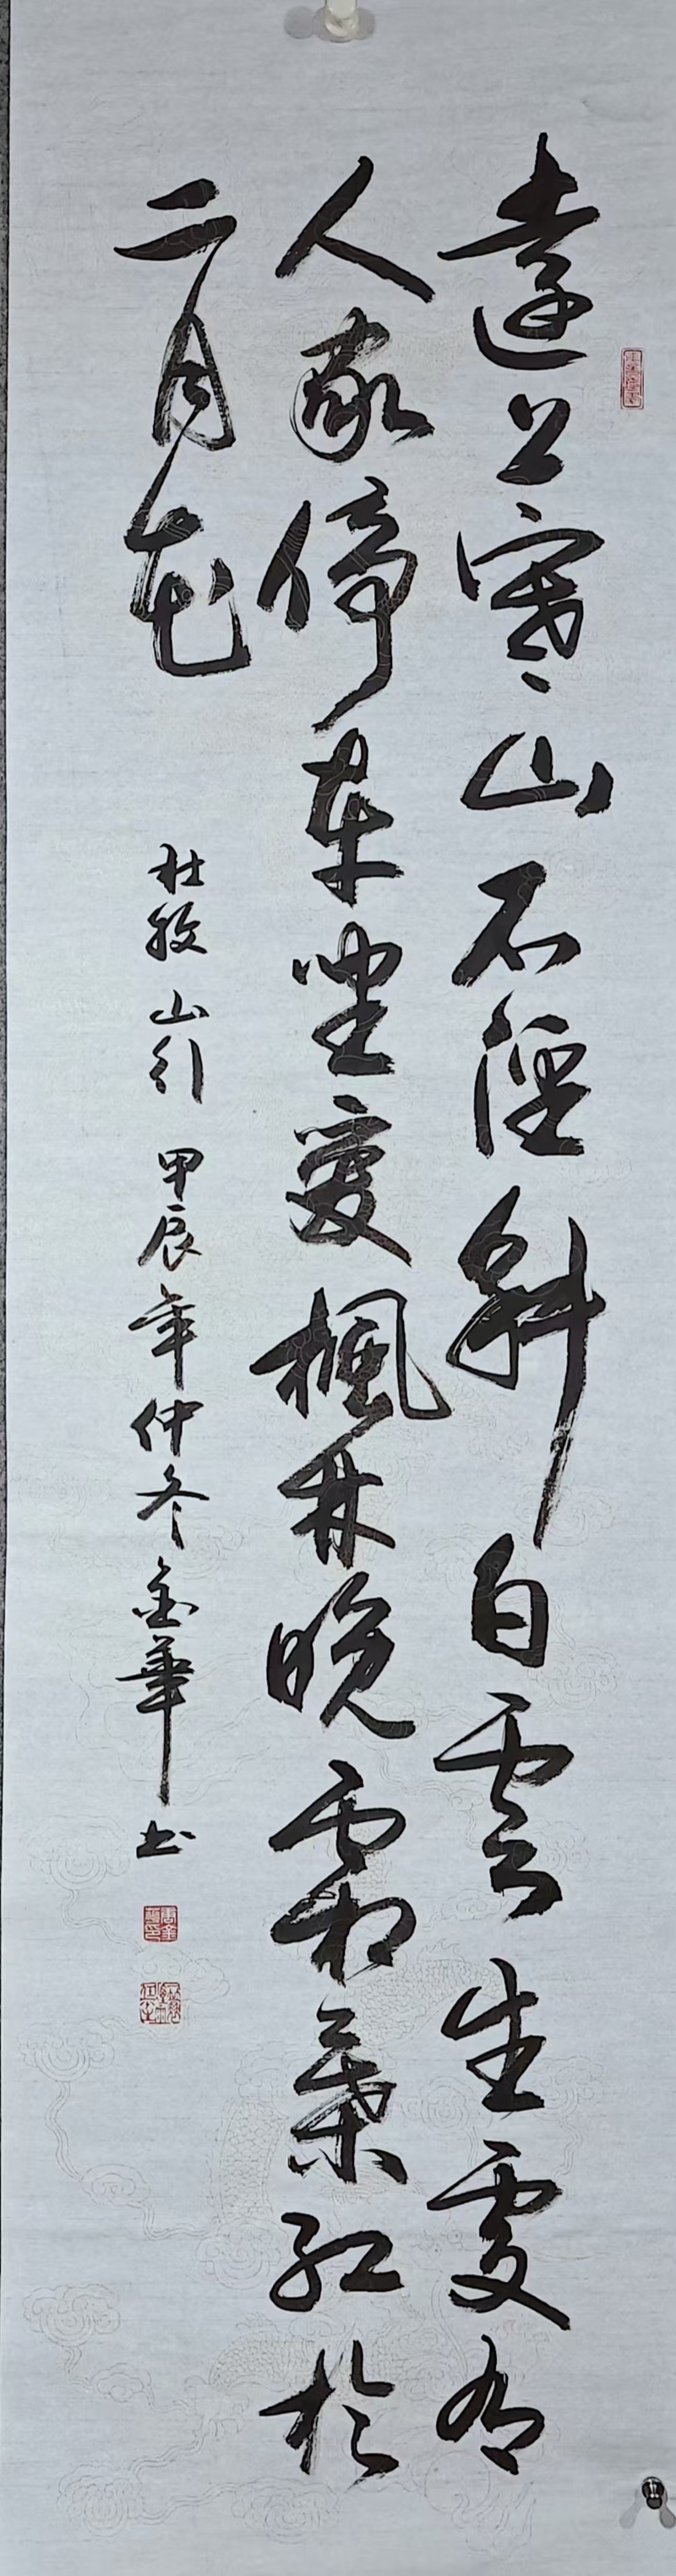 遠上寒山石徑斜白雲生處有
人家停車坐愛楓林晚霜葉紅於
二月花
杜牧山行甲辰年仲冬金華书